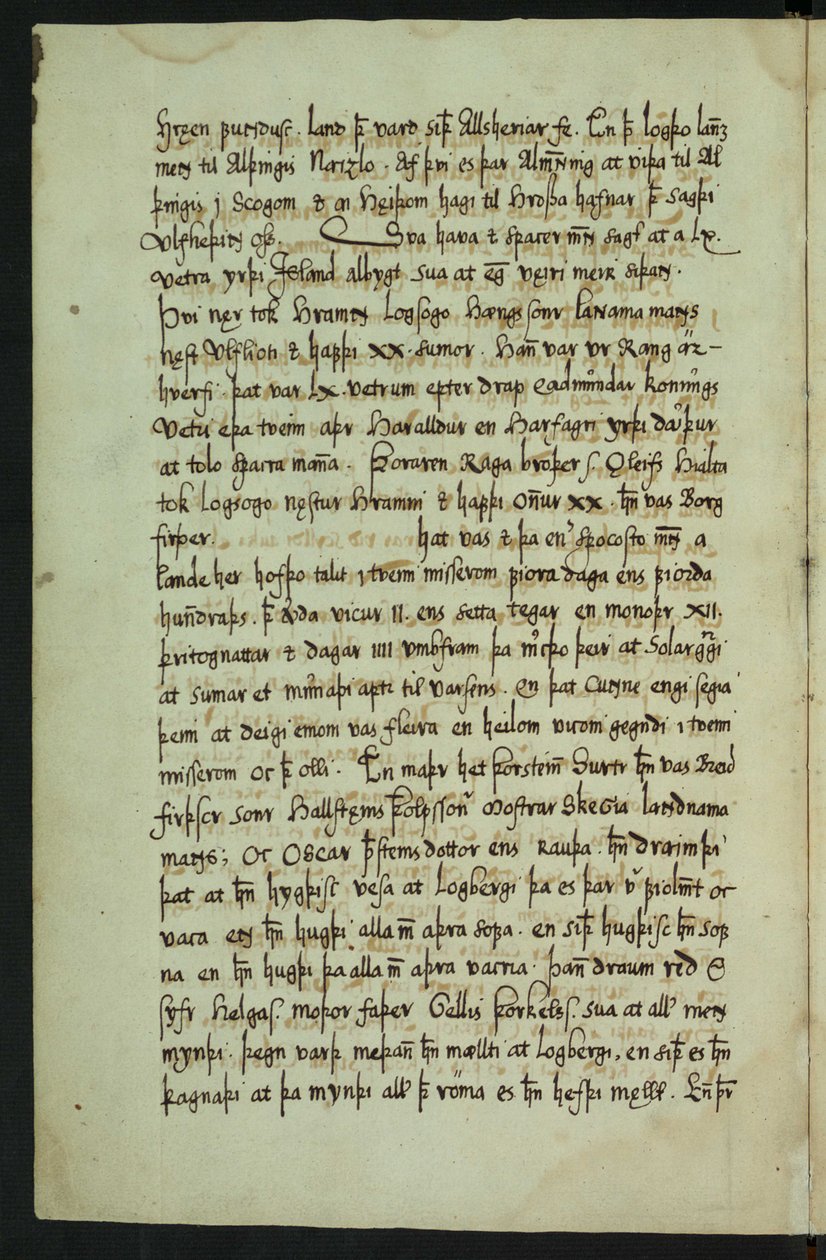 Hręen ꝼunduſc. land þ̅ vard siþ̅ Allsheriar fe. En þ̅ logþo lan̅z
menn til Alþingis Nꜹzlo. Af þvi es þar Alm̅n̅nig at viþa til Al
þingis j Scogom ⁊ a Hęiþom hagi til Hroſſa hafnar þ̅ sagþi
Vlfheþinn oſſ. Sva hava ⁊ spacer m̅nn sagt at a Lx.
vetra yrþi Island albygt sua at eg̅ vęri meiR siþan.
Þvi nęr tok Hramnn Logsogo Hængs sonr landnama manns
nęſt Vlflioti ⁊ hafþi xx. sumor. Han̅ var vr Rang ár-
hverfi. þat var Lx. vetrum epter drap Eadmundar konungs
Vetri eþa tveim aþr Haralldur en Harfagri yrþi dꜹþur
at tolo spacra man̅a. Þoraren Raga broþer s. Ǫleifs Hialta
tok Logsogo nęſtur Hramni ⁊ hafþi on̅ur xx. h̅n vas Borg
firþer. Þat vas ⁊ þa en spocoſto m̅nn a
lande her hofþo talit i tveim miſſerom ꝼiora daga ens ꝼiorda
hun̅draþs. þ̅ verda vicur II. ens setta tegar en monoþr XII.
þritognattar ⁊ dagar IIII umbfram þa mcþo þeir at Solarggi
at sumar et munaþi aptr til varsens. En þat cunne engi segia
þeim at deigi emom vas fleira en heilom vicom gegndi i tveim
miſſerom oc þ̅ olli. En maþr het þorstein̅ Surtr h̅n vas Breid
firþſcr sonr Hallſtęins þolfſſonr Moſtrar Skegia landnama
manns; oc Oscar þ̅steinsdottor ens Rauþa. h̅n drꜹimþi
þat at h̅n hygþiſc vesa at Logbergi þa es þar v̅ ꝼiolm̅t oc
vaca enn h̅n hugþi alla m̅ aþra soꝼa. en siþ̅ hugþisc h̅n soꝼ
na en h̅n hugþi þa alla m̅ aþra vacna. þan̅ draum red O
syfr Helgas. moþor faþer Gellis þorkelss. sua at all̅ menn
mynþi. þegn varþ meþan̅ h̅n mællti at Logbergi, en siþ̅ es h̅n
þagnaþi at þa mynþi all̅ þ̅ róma es h̅n hefþi męllt. En̅ þr̅